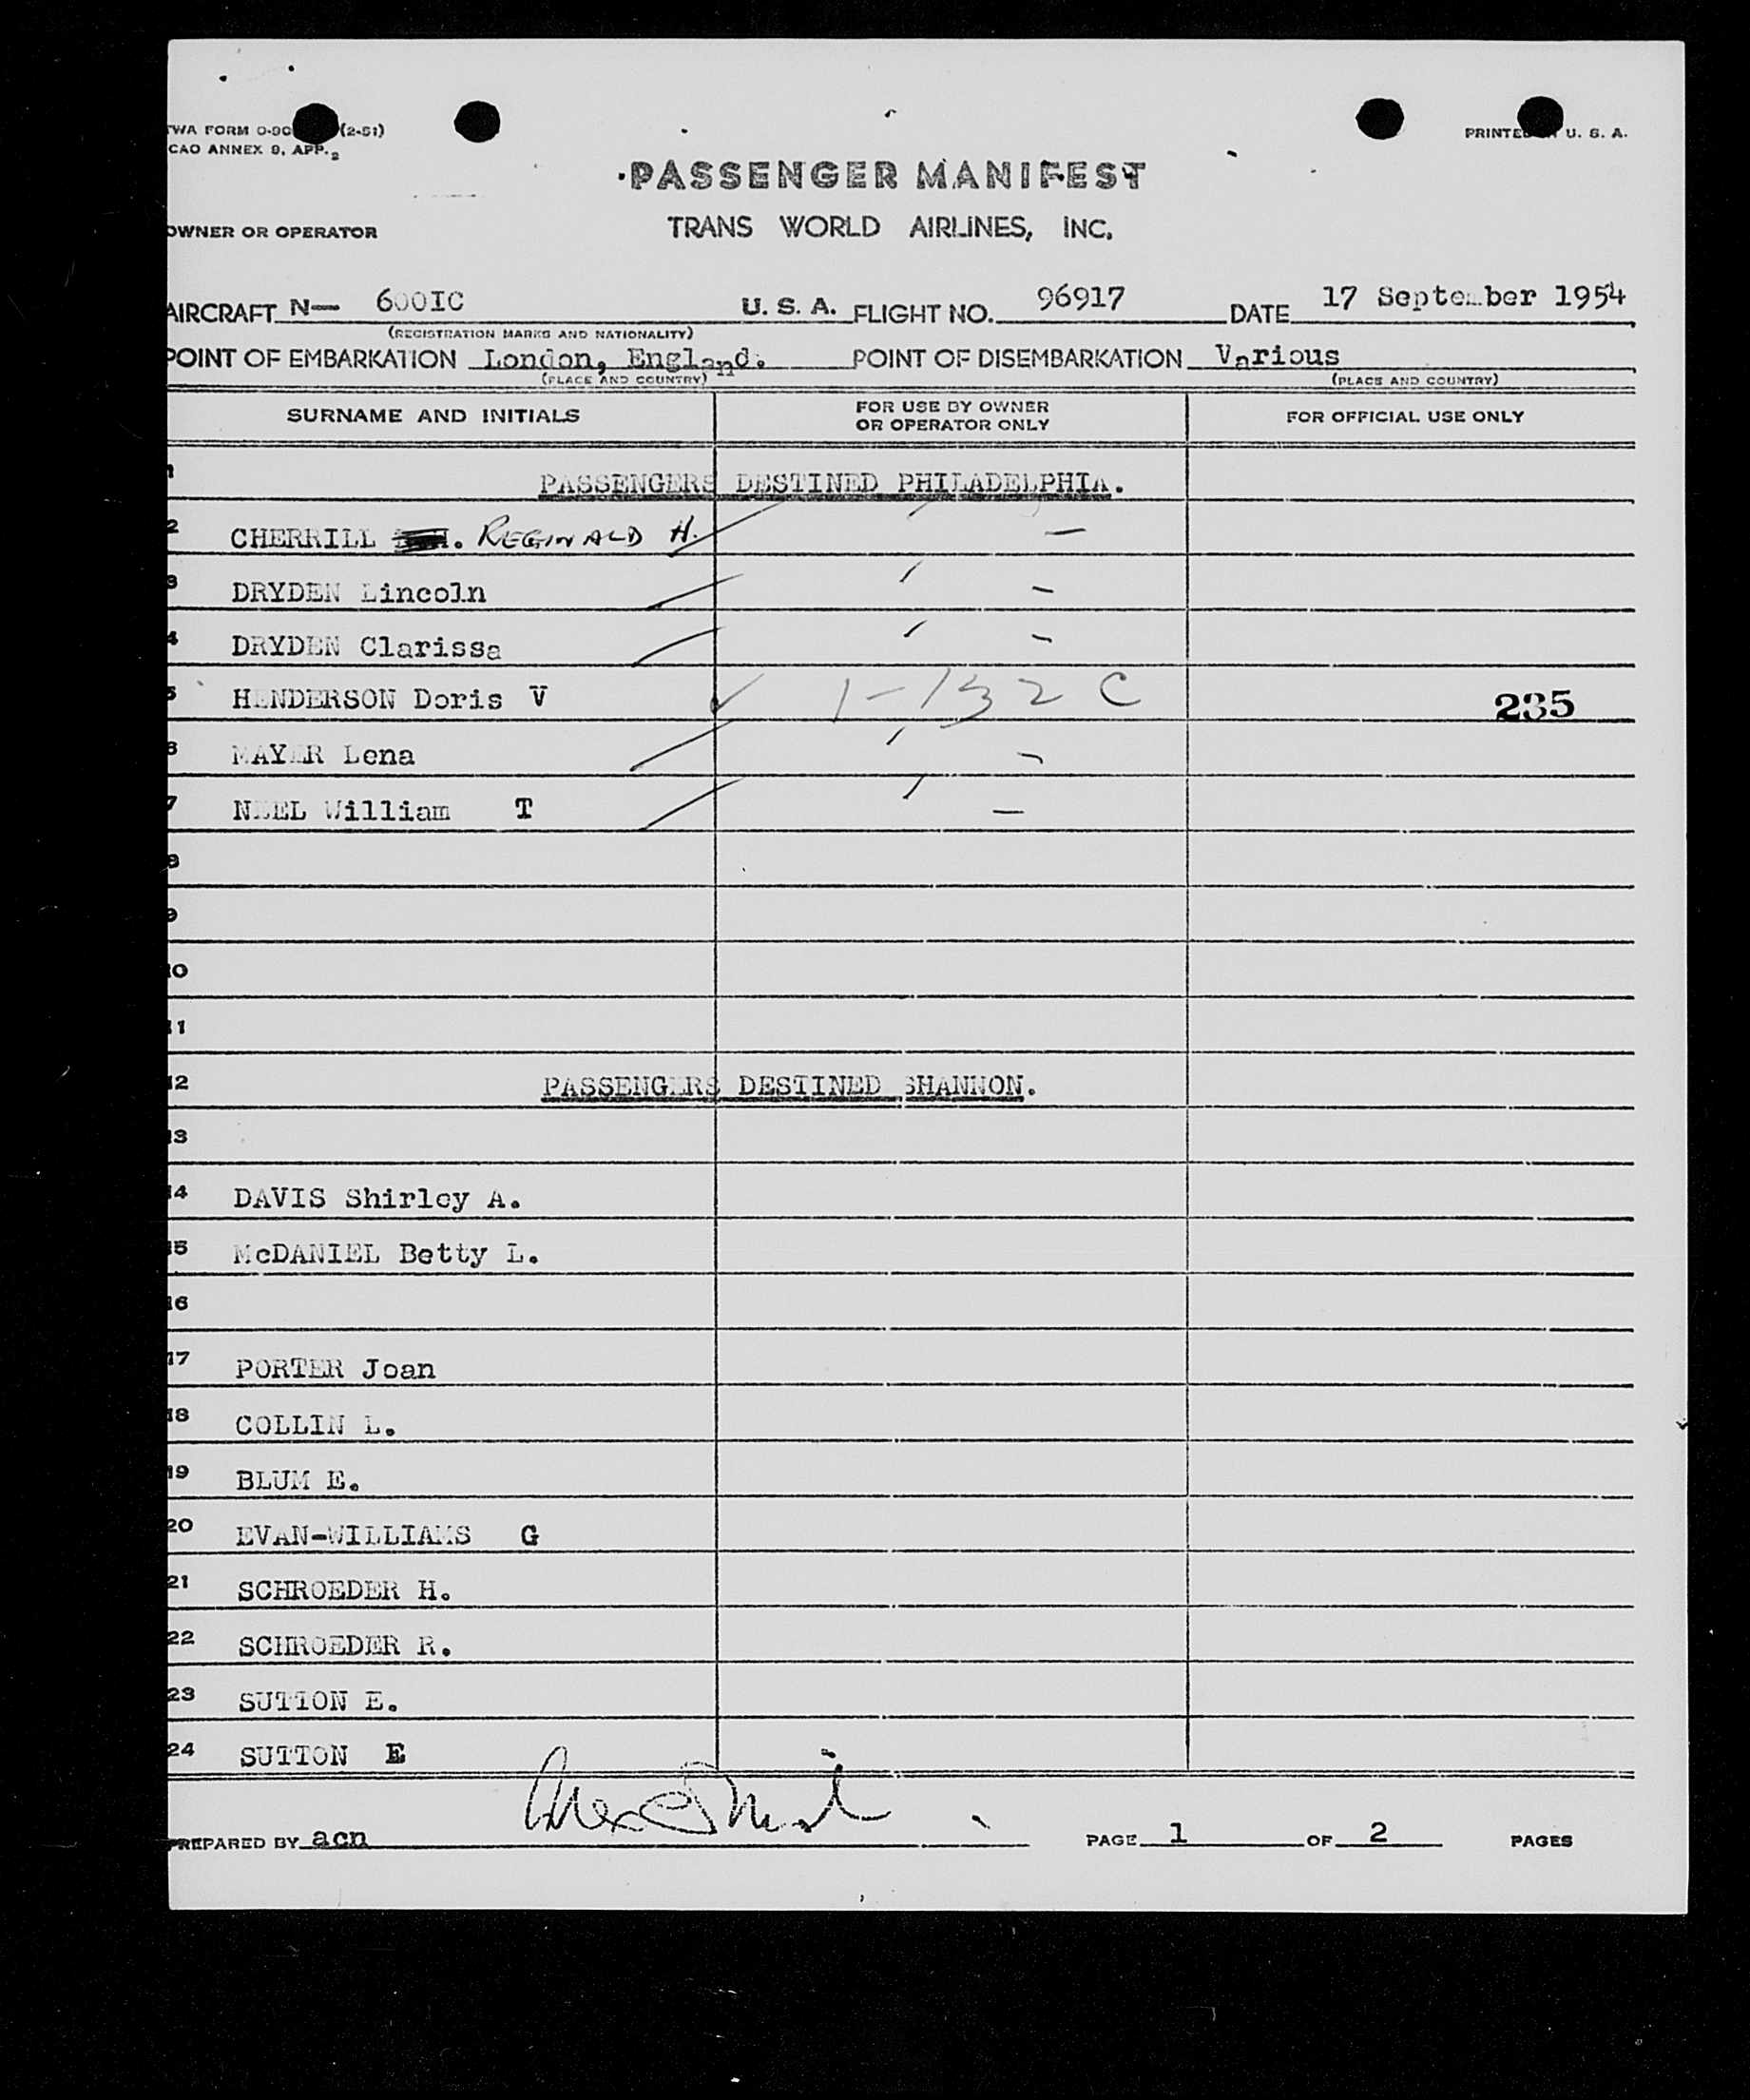 TWA FORM 0-90 (2-51) PRINTED U. S. A.
CAO ANNEX 9, APP. 2
PASSENGER MANIFEST
OWNER OR OPERATOR TRANS WORLD AIRLINES, INC.
AIRCRAFT N— 6001C U. S. A. FLIGHT NO. 96917 DATE 17 September 1954
(REGISTRATION MARKS AND NATIONALITY)
POINT OF EMBARKATION London, England. POINT OF DISEMBARKATION Various
(PLACE AND COUNTRY) (PLACE AND COUNTRY)
SURNAME AND INITIALS FOR USE BY OWNER OR OPERATOR ONLY FOR OFFICIAL USE ONLY
1 PASSENGERS DESTINED PHILADELPHIA.
2 CHERRILL . REGINALD H. —
3 DRYDEN Lincoln —
4 DRYDEN Clarissa —
5 HENDERSON Doris V ✓ 1-132 C 235
6 MAYER Lena —
7 NEEL William T —
8
9
10
11
12 PASSENGERS DESTINED SHANNON.
13
14 DAVIS Shirley A.
15 McDANIEL Betty L.
16
17 PORTER Joan
18 COLLIN L.
19 BLUM E.
20 EVAN-WILLIAMS G
21 SCHROEDER H.
22 SCHROEDER R.
23 SUTTON E.
24 SUTTON E
PREPARED BY acn PAGE 1 OF 2 PAGES